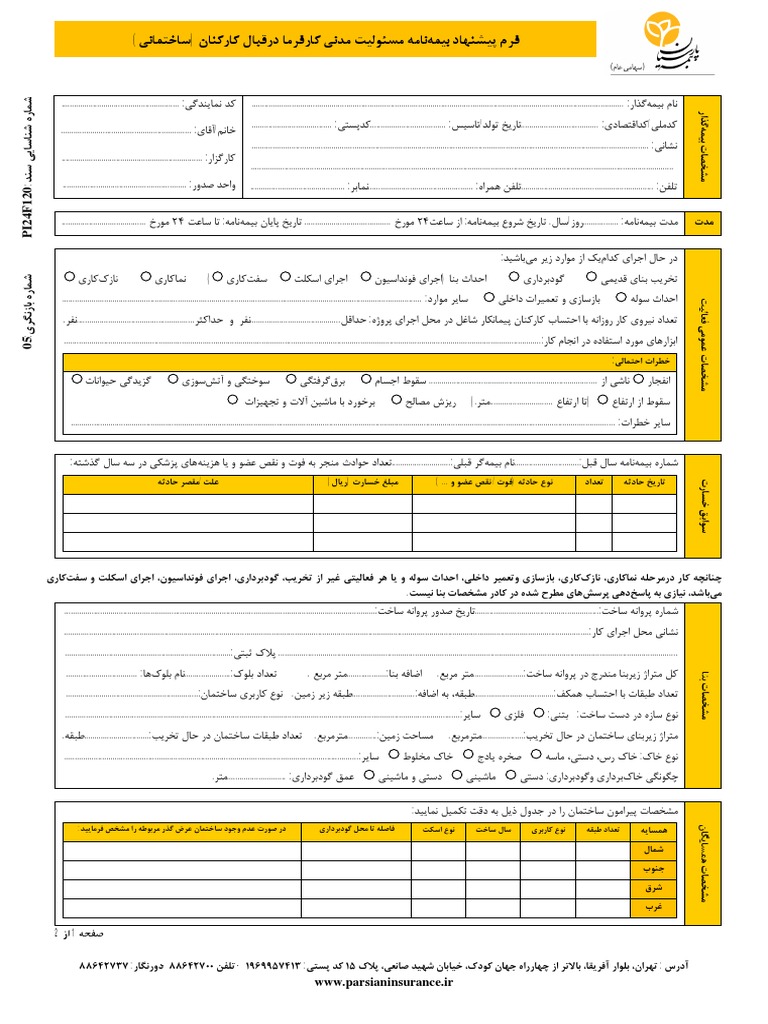 فرم پیشنهاد بیمه‌نامه مسئولیت مدنی کارفرما درقبال کارکنان (ساختمانی)
پارسیان
بیمه
(سهامی عام)
شماره شناسایی سند: PI24F120
شماره بازنگری: 05
مشخصات بیمه‌گذار
نام بیمه‌گذار: کد نمایندگی:
کدملی/کداقتصادی: تاریخ تولد/تاسیس: کدپستی: خانم/آقای:
نشانی: کارگزار:
تلفن: تلفن همراه: نمابر: واحد صدور:
مدت
مدت بیمه‌نامه: روز/سال. تاریخ شروع بیمه‌نامه: از ساعت۲۴ مورخ تاریخ پایان بیمه‌نامه: تا ساعت ۲۴ مورخ
مشخصات عمومی فعالیت
در حال اجرای کدام‌یک از موارد زیر می‌باشید:
تخریب بنای قدیمی گودبرداری احداث بنا (اجرای فونداسیون اجرای اسکلت سفت‌کاری) نماکاری نازک‌کاری
احداث سوله بازسازی و تعمیرات داخلی سایر موارد:
تعداد نیروی کار روزانه با احتساب کارکنان پیمانکار شاغل در محل اجرای پروژه: حداقل نفر و حداکثر نفر.
ابزارهای مورد استفاده در انجام کار:
خطرات احتمالی:
انفجار ناشی از سقوط اجسام برق‌گرفتگی سوختگی و آتش‌سوزی گزیدگی حیوانات
سقوط از ارتفاع (تا ارتفاع متر) ریزش مصالح برخورد با ماشین آلات و تجهیزات
سایر خطرات:
سوابق خسارت
شماره بیمه‌نامه سال قبل: نام بیمه‌گر قبلی: تعداد حوادث منجر به فوت و نقص عضو و یا هزینه‌های پزشکی در سه سال گذشته:
تاریخ حادثه تعداد نوع حادثه (فوت/نقص عضو و ... ) مبلغ خسارت (ریال) علت/مقصر حادثه
چنانچه کار درمرحله نماکاری، نازک‌کاری، بازسازی وتعمیر داخلی، احداث سوله و یا هر فعالیتی غیر از تخریب، گودبرداری، اجرای فونداسیون، اجرای اسکلت و سفت‌کاری
می‌باشد، نیازی به پاسخ‌دهی پرسش‌های مطرح شده در کادر مشخصات بنا نیست.
مشخصات بنا
شماره پروانه ساخت: تاریخ صدور پروانه ساخت:
نشانی محل اجرای کار:
پلاک ثبتی:
کل متراژ زیربنا مندرج در پروانه ساخت: متر مربع. اضافه بنا: متر مربع. تعداد بلوک: نام بلوک‌ها:
تعداد طبقات با احتساب همکف: طبقه، به اضافه: طبقه زیر زمین. نوع کاربری ساختمان:
نوع سازه در دست ساخت: بتنی: فلزی سایر:
متراژ زیربنای ساختمان در حال تخریب: مترمربع. مساحت زمین: مترمربع. تعداد طبقات ساختمان در حال تخریب: طبقه.
نوع خاک: خاک رس، دستی، ماسه صخره یادج خاک مخلوط سایر:
چگونگی خاک‌برداری وگودبرداری: دستی ماشینی دستی و ماشینی عمق گودبرداری: متر.
مشخصات همسایگان
مشخصات پیرامون ساختمان را در جدول ذیل به دقت تکمیل نمایید:
همسایه تعداد طبقه نوع کاربری سال ساخت نوع اسکت فاصله تا محل گودبرداری در صورت عدم وجود ساختمان عرض گذر مربوطه را مشخص فرمایید:
شمال
جنوب
شرق
غرب
صفحه 1 از 2
آدرس : تهران، بلوار آفریقا، بالاتر از چهارراه جهان کودک، خیابان شهید صانعی، پلاک ۱۵ کد پستی: ۱۹۶۹۹۵۷۴۱۳ - تلفن ۸۸۶۴۲۷۰۰ دورنگار: ۸۸۶۴۲۷۳۷
www.parsianinsurance.ir